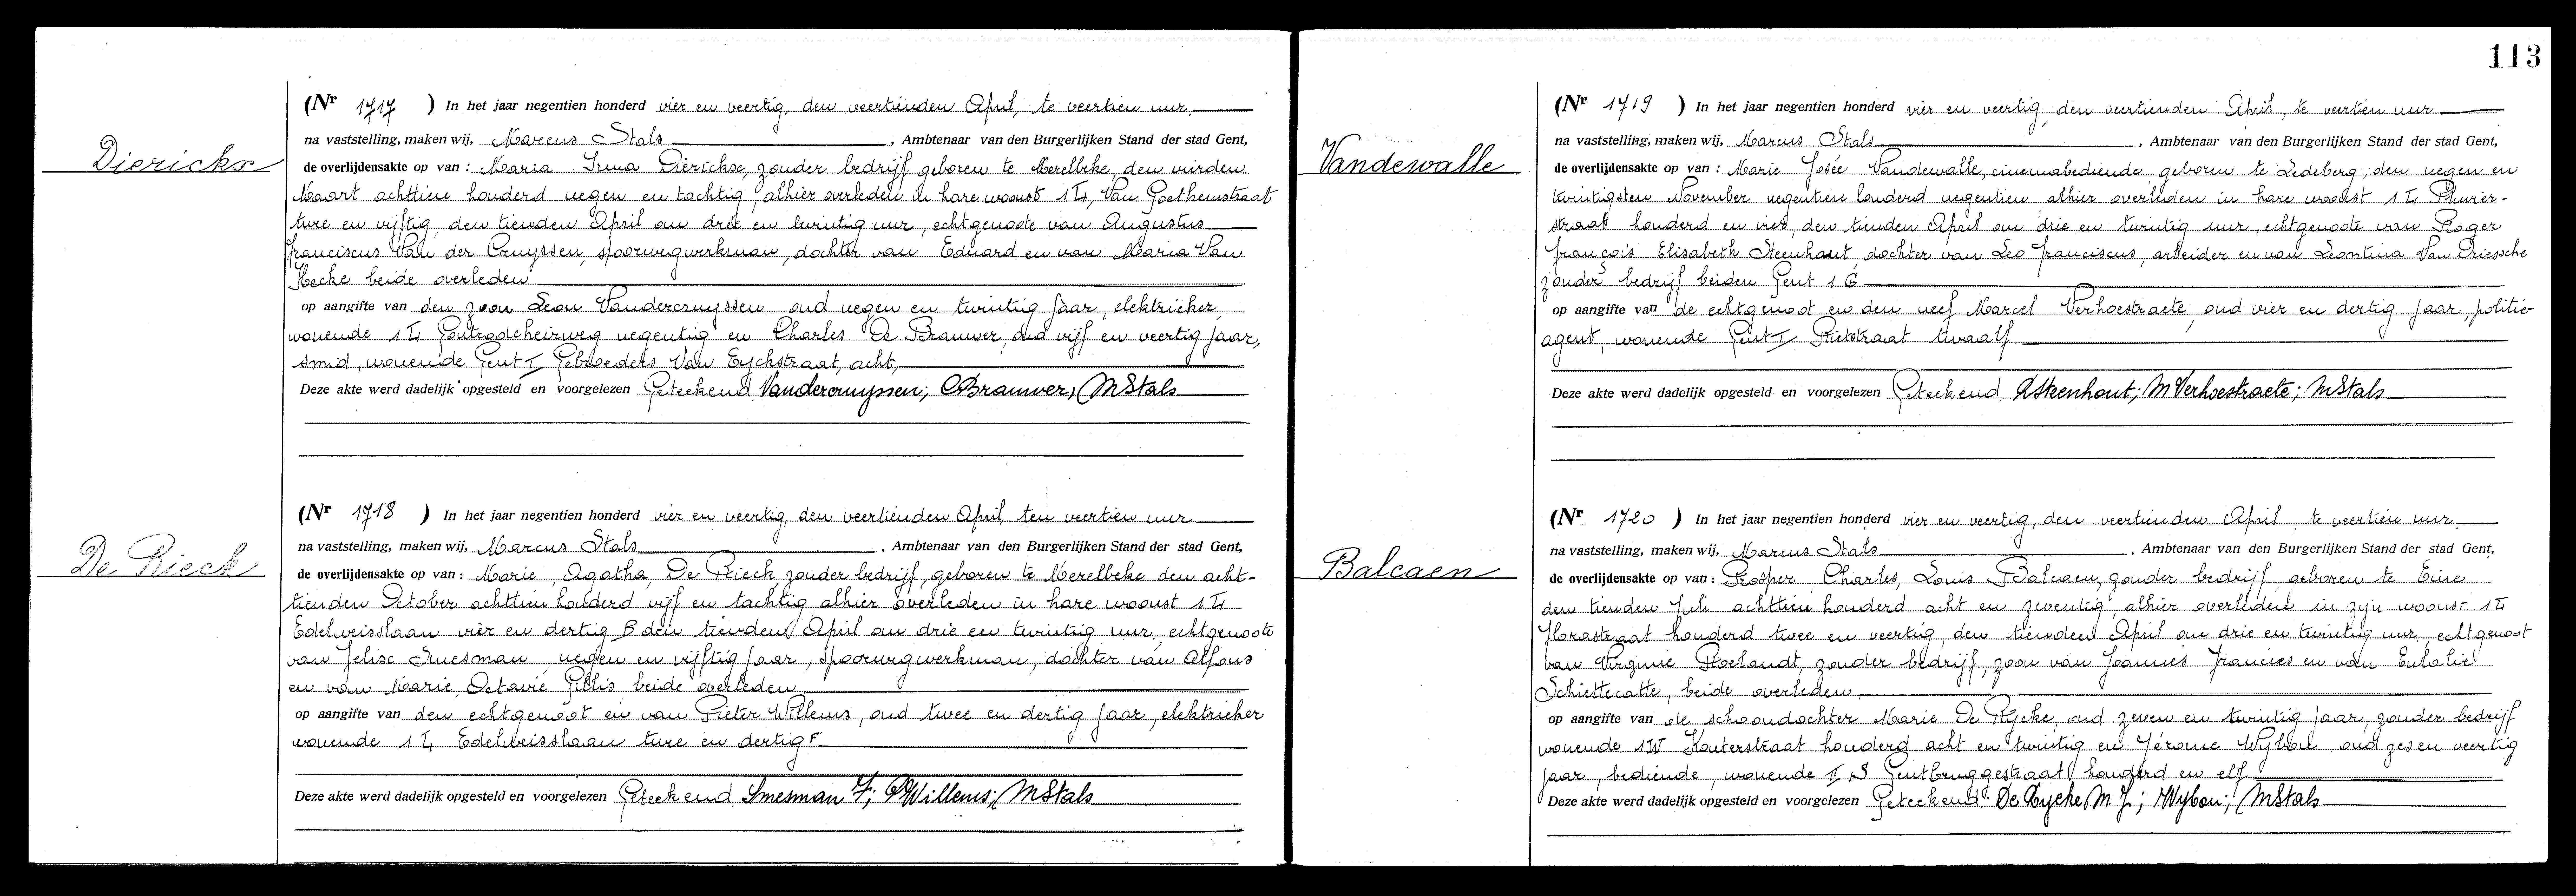 Dierickx
(Nr 1717 ) In het jaar negentien honderd vier en veertig, den veertienden April, te veertien uur
na vaststelling, maken wij, Marcus Stals , Ambtenaar van den Burgerlijken Stand der stad Gent,
de overlijdensakte op van : Maria Irma Dierickx, zonder bedrijf geboren te Merelbeke, den vierden
Maart achttien honderd negen en tachtig, alhier overleden in hare woonst 14, Van Goethemstraat
twee en vijftig den tienden April om drie en twintig uur, echtgenoote van Augustus
Franciscus Van der Cruyssen, spoorwegwerkman, dochter van Eduard en van Maria Van
Hecke beide overleden
op aangifte van den zoon Leon Vandercruyssen oud negen en twintig Jaar, elektrieker,
wonende 14 Gontrodeheirweg negentig en Charles De Brauwer, oud vijf en veertig Jaar,
smid, wonende Gent I Gebroeders Van Eyckstraat, acht,
Deze akte werd dadelijk opgesteld en voorgelezen Geteekend Vandercruyssen; CBrauwer; MStals
De Rieck
(Nr 1718 ) In het jaar negentien honderd vier en veertig, den veertienden April, ten veertien uur
na vaststelling, maken wij, Marcus Stals , Ambtenaar van den Burgerlijken Stand der stad Gent,
de overlijdensakte op van : Marie, Agatha, De Rieck, zonder bedrijf, geboren te Merelbeke den acht-
tienden October achttien honderd vijf en tachtig alhier overleden in hare woonst 14
Edelweisslaan vier en dertig B den tienden April om drie en twintig uur, echtgenoote
van Felix Smesman negen en vijftig Jaar, spoorwegwerkman, dochter van Alfons
en van Marie, Octavie Gillis beide overleden
op aangifte van den echtgenoot en van Pieter Willems, oud twee en dertig Jaar, elektrieker
wonende 14 Edelweisslaan twee en dertig F
Deze akte werd dadelijk opgesteld en voorgelezen Geteekend Smesman F; PWillems; MStals
113
Vandewalle
(Nr 1719 ) In het jaar negentien honderd vier en veertig, den veertienden April, te veertien uur
na vaststelling, maken wij, Marcus Stals , Ambtenaar van den Burgerlijken Stand der stad Gent,
de overlijdensakte op van : Marie Josée Vandewalle, cinemabediende, geboren te Ledeberg, den negen en
twintigsten November negentien honderd negentien alhier overleden in hare woonst 14
straat honderd en vier, den tienden April om drie en twintig uur, echtgenoote van Roger
François Elisabeth Steenhaut dochter van Leo Franciscus, arbeider en van Leontina Van Driessche
zonder bedrijf beiden Gent 16
op aangifte van de echtgenoot en den neef Marcel Verhoestraete, oud vier en dertig Jaar, politie-
agent, wonende Gent I Rietstraat twaalf
Deze akte werd dadelijk opgesteld en voorgelezen Geteekend RSteenhout; M Verhoestraete; MStals
Balcaen
(Nr 1720 ) In het jaar negentien honderd vier en veertig, den veertienden April te veertien uur
na vaststelling, maken wij, Marcus Stals , Ambtenaar van den Burgerlijken Stand der stad Gent,
de overlijdensakte op van : Prosper Charles, Louis Balcaen, zonder bedrijf geboren te Eine
den tienden Juli achttien honderd acht en zeventig alhier overleden in zijn woonst 14
Florastraat honderd twee en veertig, den tienden April om drie en twintig uur, echtgenoot
van Virginie Roelandt, zonder bedrijf, zoon van Joannes Francies en van Eulalie
Schiettecatte, beide overleden
op aangifte van de schoondochter Marie De Rycke, oud zeven en twintig Jaar, zonder bedrijf
wonende 1W Kouterstraat honderd acht en twintig en Jérome Wybou, oud zes en veertig
Jaar, bediende, wonende Gentbruggestraat honderd en elf
Deze akte werd dadelijk opgesteld en voorgelezen Geteekend: De Rycke M J; JWybou; MStals